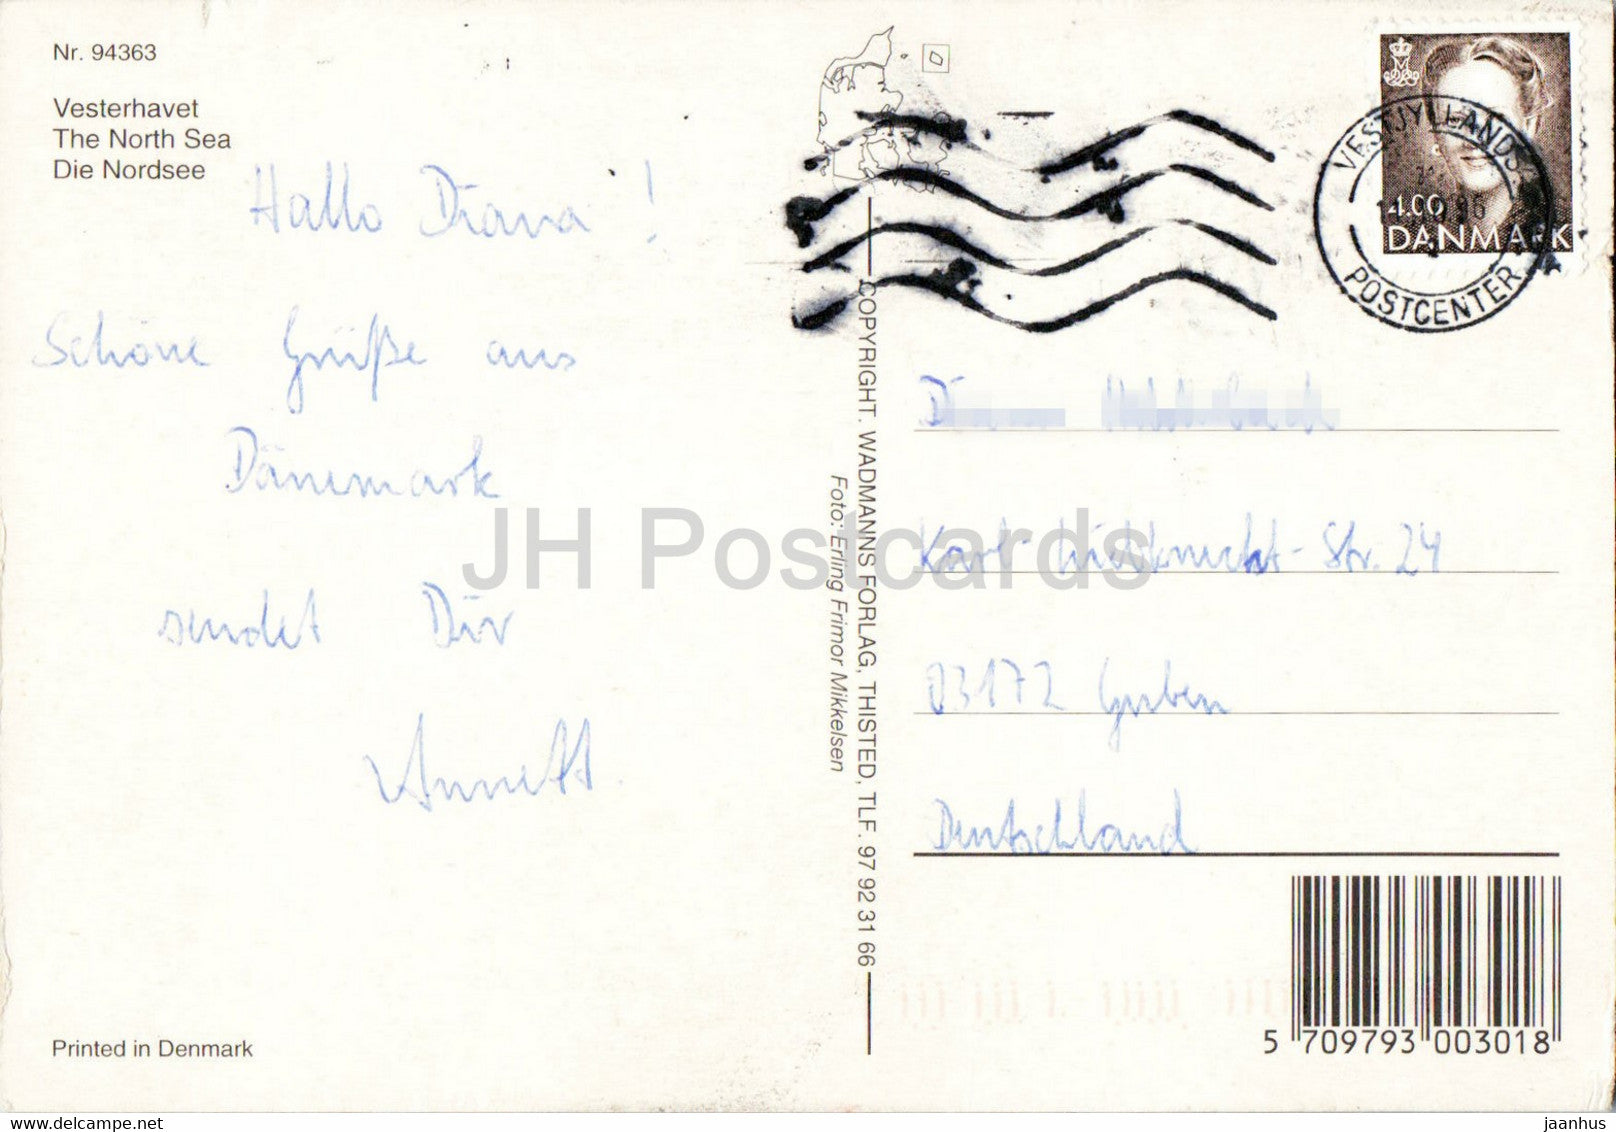 Nr. 94363
Vesterhavet
The North Sea
Die Nordsee
Hallo Diana!
Schöne Grüße aus
Dänemark
sendet Dir
Annett.
Printed in Denmark
COPYRIGHT. WADMANNS FORLAG, THISTED, TLF. 97 92 31 66
Foto: Erling Frimor Mikkelsen
VESTJYLLANDS
POSTCENTER
4.00
DANMARK
Karl-Liebknecht-Str. 24
03172 Guben
Deutschland
5 709793 003018
JH Postcards
delcampe.net
jaanhus